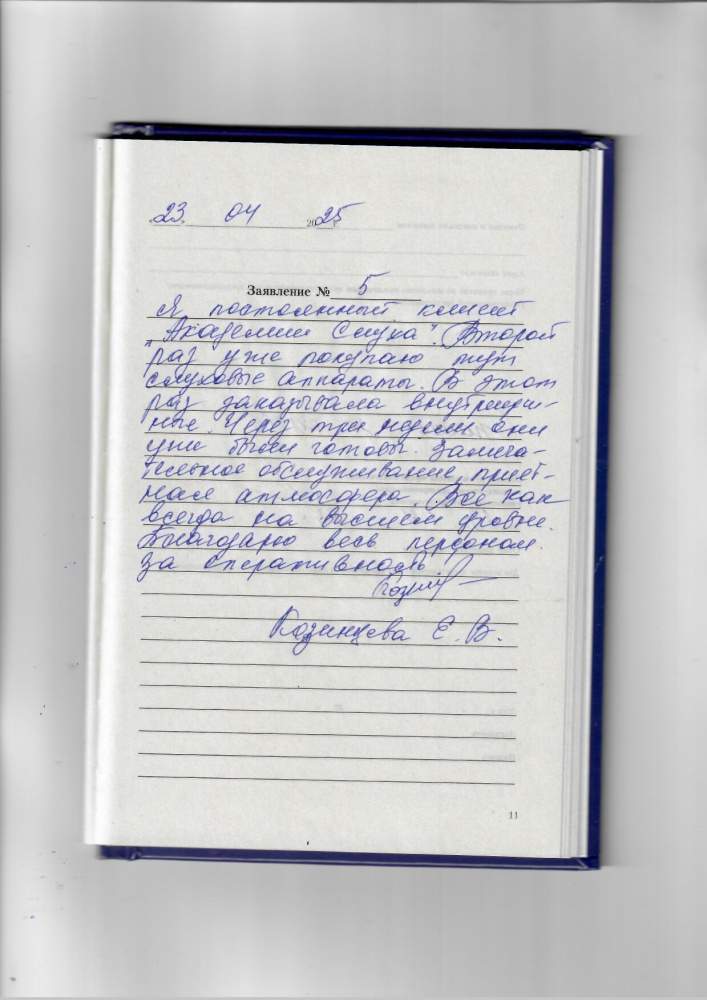 23. 04 2025 г.
Заявление № 5
Я постоянный клиент
"Академии Слуха". Второй
раз уже покупаю тут
слуховые аппараты. В этот
раз заказывала внутриуш-
ные. Через три недели они
уже были готовы. Замеча-
тельное обслуживание, прият-
ная атмосфера. Всё как
всегда на высшем уровне.
Благодарю весь персонал
за оперативность!
Козинцева Е. В.
11